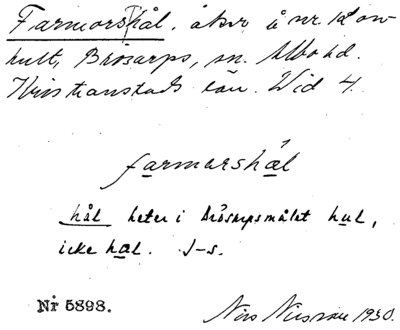 Farmorshål, åker å nr 12 
hult, Brösarps, sn. Albo hd.
Kristianstads län. Wid 4.
farmarshål
hål heter i Brösarpsmålet hul,
icke hal. J-s.
Nr 5898.
Nils Nilsson 1930.